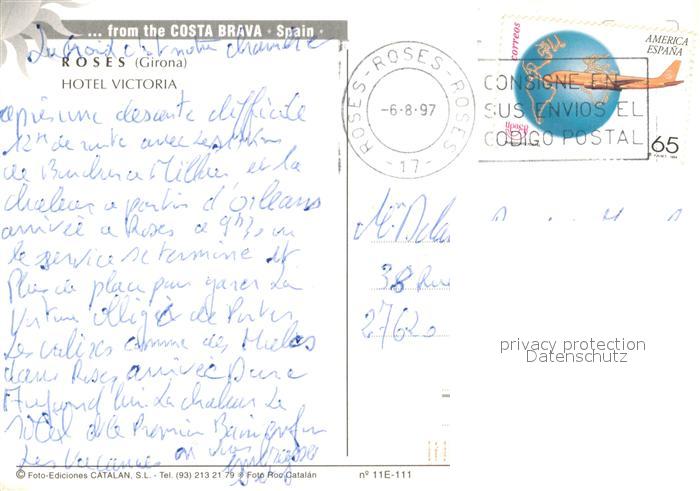 ... from the COSTA BRAVA · Spain ·
La croix c'est notre chambre
ROSES (Girona)
HOTEL VICTORIA
après une descente difficile
12h de route avec les
de et la
chaleur à partir d'Orléans
arrivée à Roses à 9h30 ou
le service se termine et
Plus de place pour garer la
Voiture obligé de Porter
Les valises comme des Mules
dans Roses arrivée
Aujourd'hui La chaleur Le
Soleil et le Premier Bain enfin
Les Vacances on vous
embrasse
© Foto-Ediciones CATALAN, S.L. - Tel. (93) 213 21 79 * Foto Roc Catalán
nº 11E-111
ROSES-ROSES-ROSES
-6-8-97
-17-
CONSIGNE EN
SUS ENVIOS EL
CODIGO POSTAL
correos
AMERICA
ESPAÑA
65
38 Rue
27620
privacy protection
Datenschutz